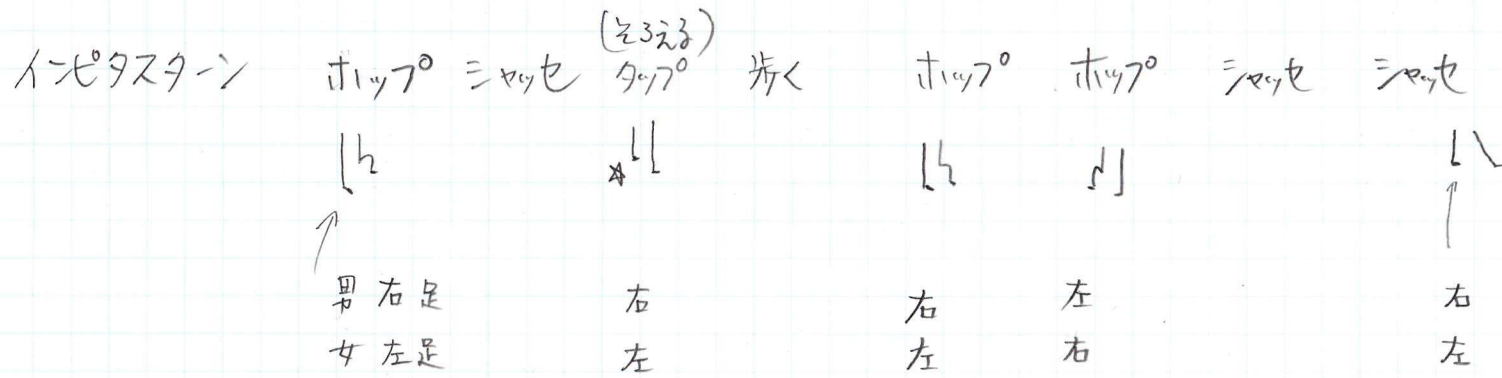 (そろえる)
インピタスターン ホップ シャッセ タップ 歩く ホップ ホップ シャッセ シャッセ
男 右足 右 右 左 右
女 左足 左 左 右 左